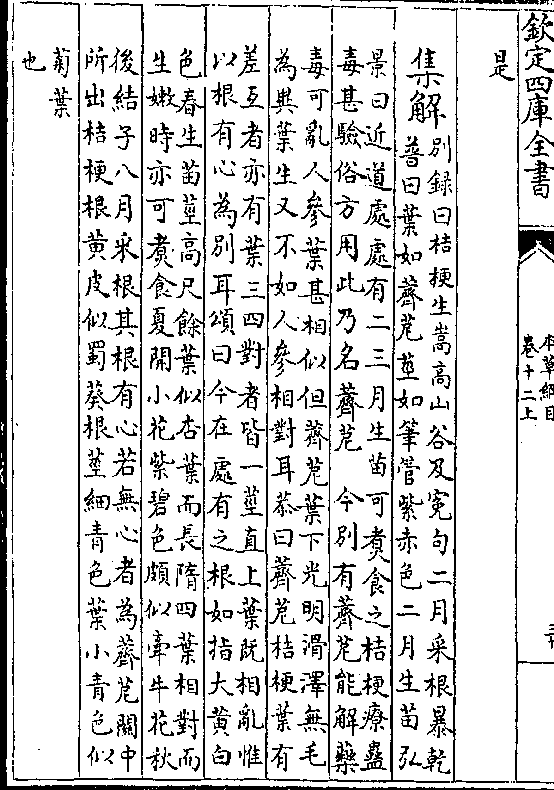 欽定四庫全書
本草綱目
卷十二上
是
集解
別録曰桔梗生嵩高山谷及寃句二月采根暴乾
普曰葉如薺苨莖如筆管紫赤色二月生苗弘
景曰近道處處有二三月生苗可煮食之桔梗療蠱
毒甚驗俗方用此乃名薺苨 今別有薺苨能解藥
毒可亂人參葉甚相似但薺苨葉下光明滑澤無毛
為異葉生又不如人參相對耳恭曰薺苨桔梗葉有
差互者亦有葉三四對者皆一莖直上葉既相亂惟
以根有心為別耳頌曰今在處有之根如指大黄白
色春生苗莖高尺餘葉似杏葉而長隋四葉相對而
生嫩時亦可煮食夏開小花紫碧色頗似牽牛花秋
後結子八月采根其根有心若無心者為薺苨關中
所出桔梗根黄皮似蜀葵根莖細青色葉小青色似
菊葉
也